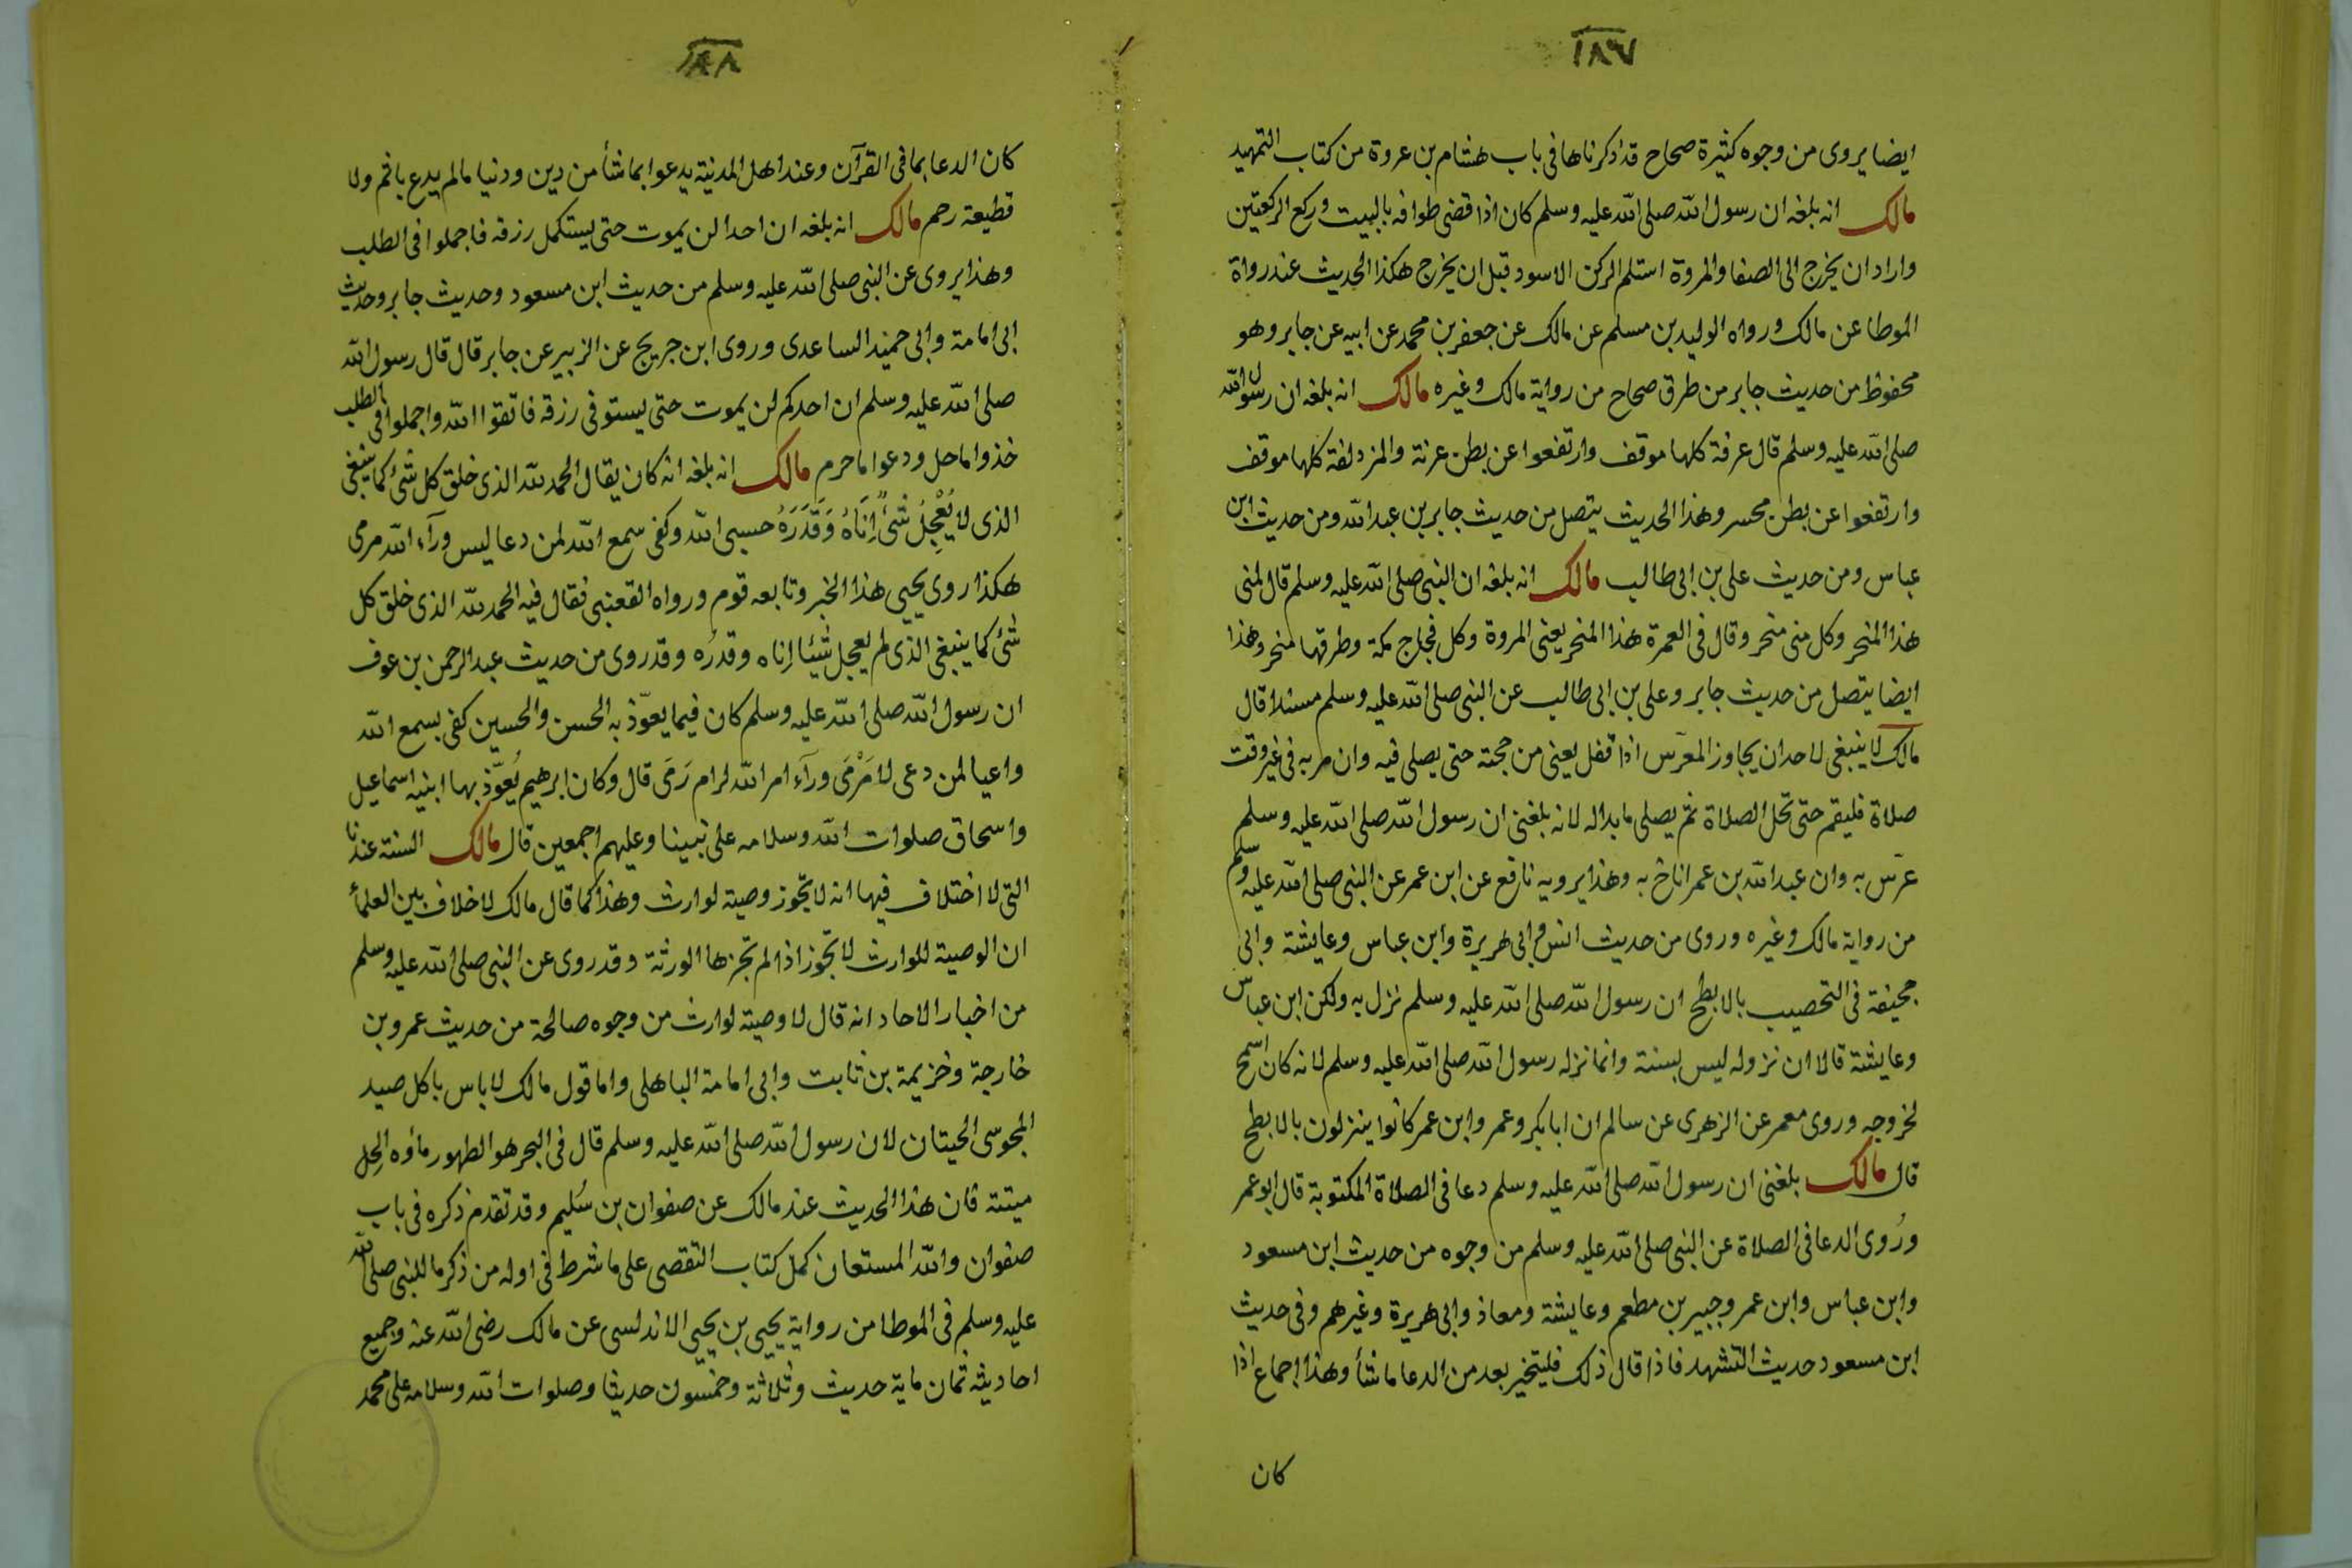 ١٨٧
ايضا يروى من وجوه كثيرة صحاح قد ذكرناها فى باب هشام بن عروة من كتاب التمهيد
مالك انه بلغه ان رسول الله صلى الله عليه وسلم كان اذا قضى طوافه بالبيت وركع الركعتين
واراد ان يخرج الى الصفا والمروة استلم الركن الاسود قبل ان يخرج هكذا الحديث عند رواة
الموطا عن مالك ورواه الوليد بن مسلم عن مالك عن جعفر بن محمد عن ابيه عن جابر وهو
محفوظ من حديث جابر من طرق صحاح من رواية مالك وغيره مالك انه بلغه ان رسول الله
صلى الله عليه وسلم قال عرفة كلها موقف وارتفعوا عن بطن عرنة والمزدلفة كلها موقف
وارتفعوا عن بطن محسر وهذا الحديث يتصل من حديث جابر بن عبد الله ومن حديث ابن
عباس ومن حديث على بن ابى طالب مالك انه بلغه ان النبى صلى الله عليه وسلم قال لمنى
هذا المنحر وكل منى منحر وقال فى العمرة هذا المنحر يعنى المروة وكل فجاج مكة وطرقها منحر وهذا
ايضا يتصل من حديث جابر وعلى بن ابى طالب عن النبى صلى الله عليه وسلم مسندا قال
مالك لا ينبغى لاحد ان يجاوز المعرّس اذا قفل يعنى من حجته حتى يصلى فيه وان مر به فى غير وقت
صلاة فليقم حتى تحل الصلاة ثم يصلى ما بدا له لانه بلغنى ان رسول الله صلى الله عليه وسلم
عرّس به وان عبد الله بن عمر اناخ به وهذا يرويه نافع عن ابن عمر عن النبى صلى الله عليه وسلم
من رواية مالك وغيره وروى من حديث انس وابى هريرة وابن عباس وعايشة وابى
جحيفة فى التحصيب بالابطح ان رسول الله صلى الله عليه وسلم نزل به ولكن ابن عباس
وعايشة قالا ان نزوله ليس بسنة وانما نزله رسول الله صلى الله عليه وسلم لانه كان اسمح
لخروجه وروى معمر عن الزهرى عن سالم ان ابا بكر وعمر وابن عمر كانوا ينزلون بالابطح
قال مالك بلغنى ان رسول الله صلى الله عليه وسلم دعا فى الصلاة المكتوبة قال ابو عمر
ورُوى الدعا فى الصلاة عن النبى صلى الله عليه وسلم من وجوه من حديث ابن مسعود
وابن عباس وابن عمر وجبير بن مطعم وعايشة ومعاذ وابى هريرة وغيرهم وفى حديث
ابن مسعود حديث التشهد فاذا قال ذلك فليتخير بعد من الدعا ما شأ وهذا اجماع اذا
كان
١٨٨
كان الدعا بما فى القرآن وعند اهل المدينة يدعوا بما شأ من دين ودنيا ما لم يدع باثم ولا
قطيعة رحم مالك انه بلغه ان احدا لن يموت حتى يستكمل رزقه فاجملوا فى الطلب
وهذا يروى عن النبى صلى الله عليه وسلم من حديث ابن مسعود وحديث جابر وحديث
ابى امامة وابى حميد الساعدى وروى ابن جريج عن الزبير عن جابر قال قال رسول الله
صلى الله عليه وسلم ان احدكم لن يموت حتى يستوفى رزقه فاتقوا الله واجملوا فى الطلب
خذوا ما حل ودعوا ما حرم مالك انه بلغه انه كان يقال الحمد لله الذى خلق كل شئ كما ينبغى
الذى لا يُعْجِلُ شئً اِنَاهُ وَقَدَرَهُ حسبى الله وكفى سمع الله لمن دعا ليس ورآء الله مرمى
هكذا روى يحيى هذا الخبر وتابعه قوم ورواه القعنبى فقال فيه الحمد لله الذى خلق كل
شئ كما ينبغى الذى لم يعجل شيئا اناه وقدرُه وقد روى من حديث عبد الرحمن بن عوف
ان رسول الله صلى الله عليه وسلم كان فيما يعوّذ به الحسن والحسين كفى بسمع الله
واعيا لمن دعى لا مَرْمَى ورآء امر الله لرام رَمَى قال وكان ابرهيم يُعوّذ بها ابنيه اسماعيل
واسحاق صلوات الله وسلامه على نبينا وعليهم اجمعين قال مالك السنة عندنا
التى لا اختلاف فيها انه لا تجوز وصية لوارث وهذا كما قال مالك لا خلاف بين العلمأ
ان الوصية للوارث لا تجوز اذا لم تجزها الورثة وقد روى عن النبى صلى الله عليه وسلم
من اخبار الاحاد انه قال لا وصية لوارث من وجوه صالحة من حديث عمرو بن
خارجة وخزيمة بن ثابت وابى امامة الباهلى واما قول مالك لا باس باكل صيد
المجوسى الحيتان لان رسول الله صلى الله عليه وسلم قال فى البحر هو الطهور ماؤه الحِل
ميتته فان هذا الحديث عند مالك عن صفوان بن سُليم وقد تقدم ذكره فى باب
صفوان والله المستعان كمل كتاب التقصى على ما شرط فى اوله من ذكر ما للنبى صلى الله
عليه وسلم فى الموطا من رواية يحيى بن يحيى الاندلسى عن مالك رضى الله عنه وجميع
احاديثه ثمان ماية حديث وثلاثة وخمسون حديثا وصلوات الله وسلامه على محمد